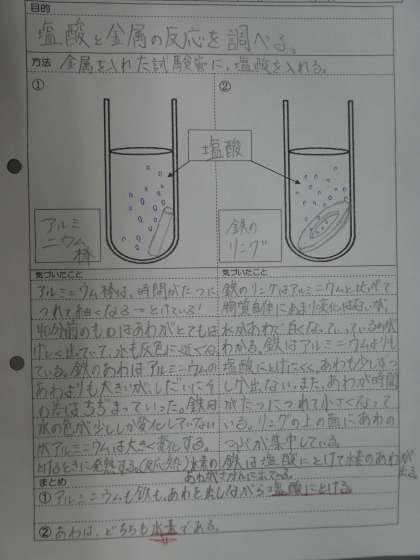 目的
塩酸と金属の反応を調べる。
方法
金属を入れた試験管に、塩酸を入れる。
①
②
塩酸
アルミ
ニウム
棒
鉄の
リング
気づいたこと
アルミニウム棒は、時間がたつに
つれて細くなる→とけている!
40分前のものはあわがとても
げしく出ていて、水も灰色に近くな
ている。鉄のあわはアルミニウムの
あわよりも大きいが、しだいにそ
の差はちぢまっていった。鉄は
水の色が少ししか変化していない
がアルミニウムは大きく変化する。
とけるときに発熱する。
気づいたこと
鉄のリングはアルミニウムと比べて
物質自体にあまり変化はないが、
水があわで白くなっていっているのが
わかる。鉄はアルミニウムよりも
塩酸にとけにくく、あわも少しずつ
しか出ない。また、あわが時間
がたつにつれて小さくなって
いる。リングの上の面にあわの
つぶが集中している。
鉄は塩酸にとけて水素のあわが
出る。
まとめ
①アルミニウムも鉄も、あわを出しながら塩酸にとける。
②あわは、どちらも水素である。